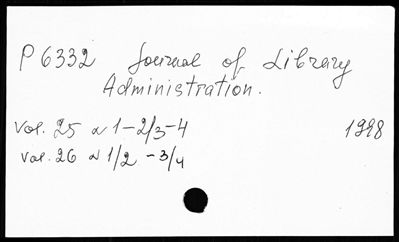 P 6332 Journal of Library
Administration.
Vol. 25 N 1-2/3-4 1998
Vol. 26 N 1/2 -3/4